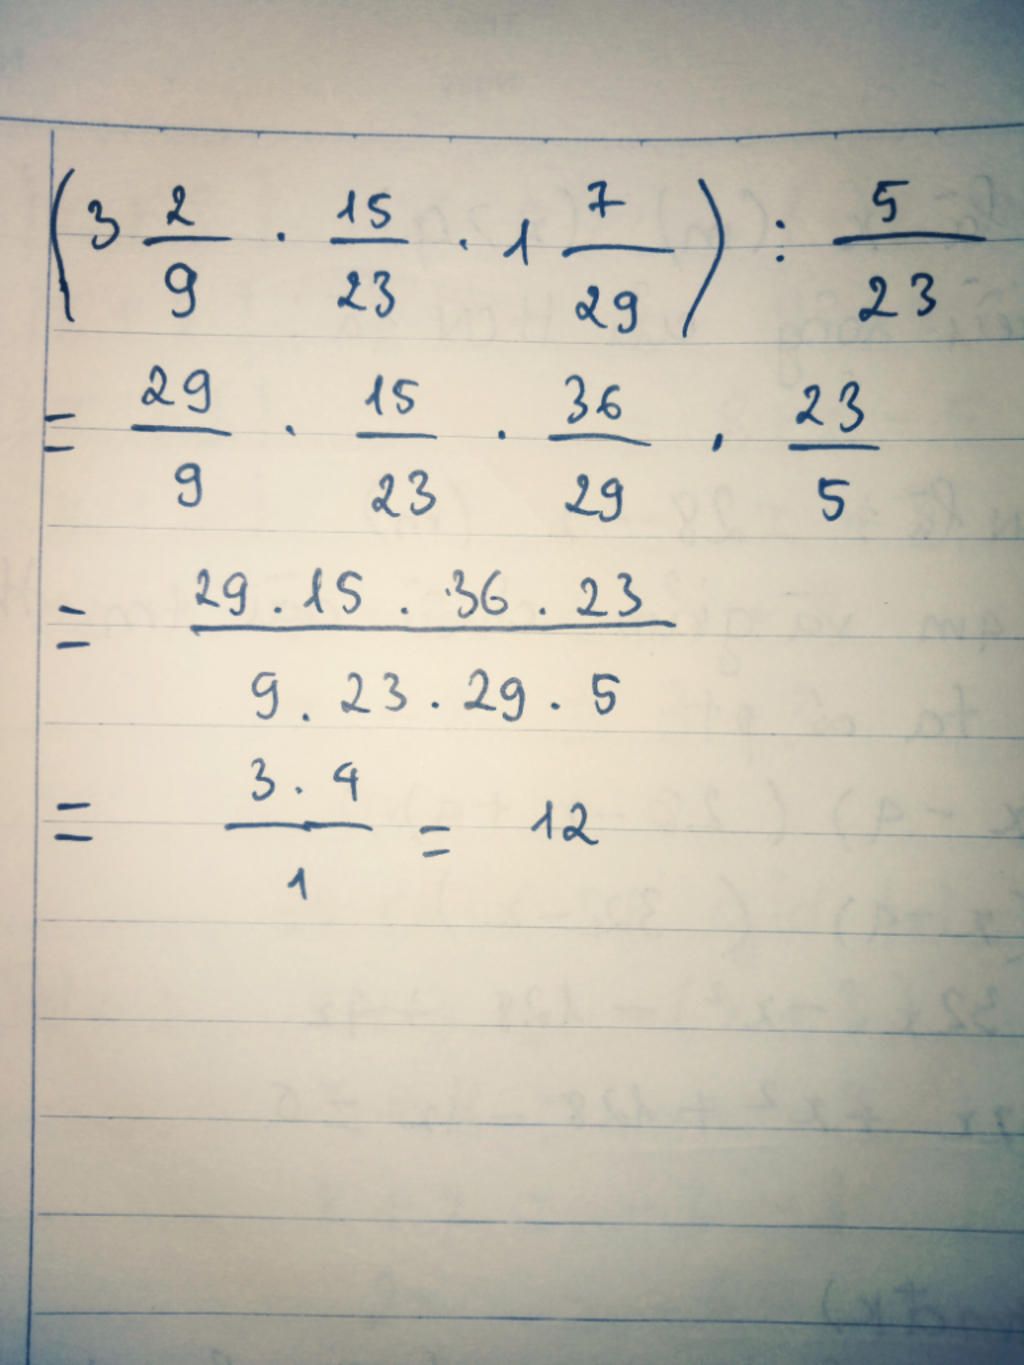 (3 2/9 . 15/23 . 1 7/29) : 5/23
= 29/9 . 15/23 . 36/29 . 23/5
= 29 . 15 . 36 . 23 / 9 . 23 . 29 . 5
= 3 . 4 / 1 = 12